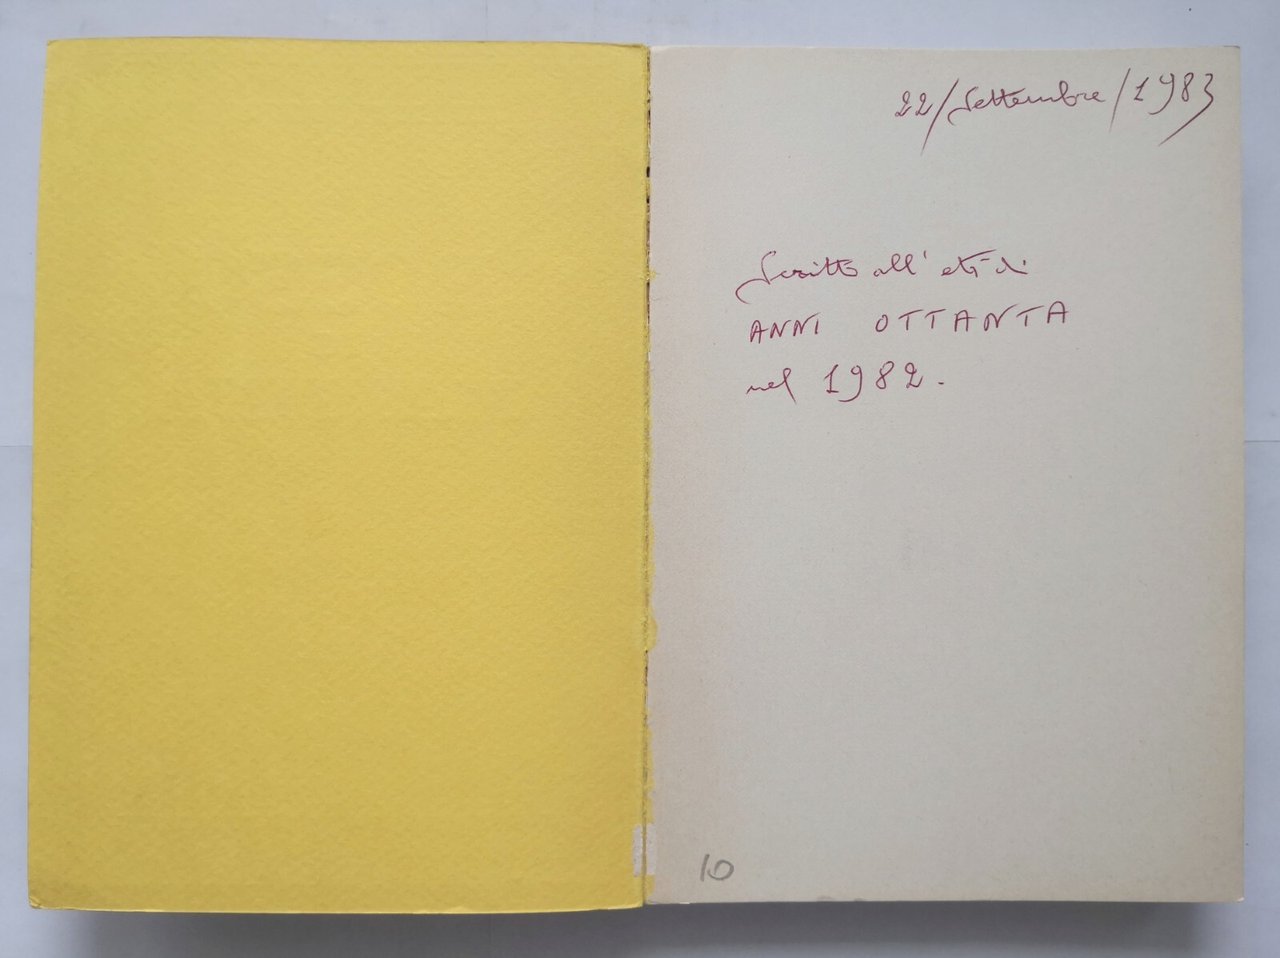 22/Settembre/1983
Scritto all'età di
ANNI OTTANTA
nel 1982.
10